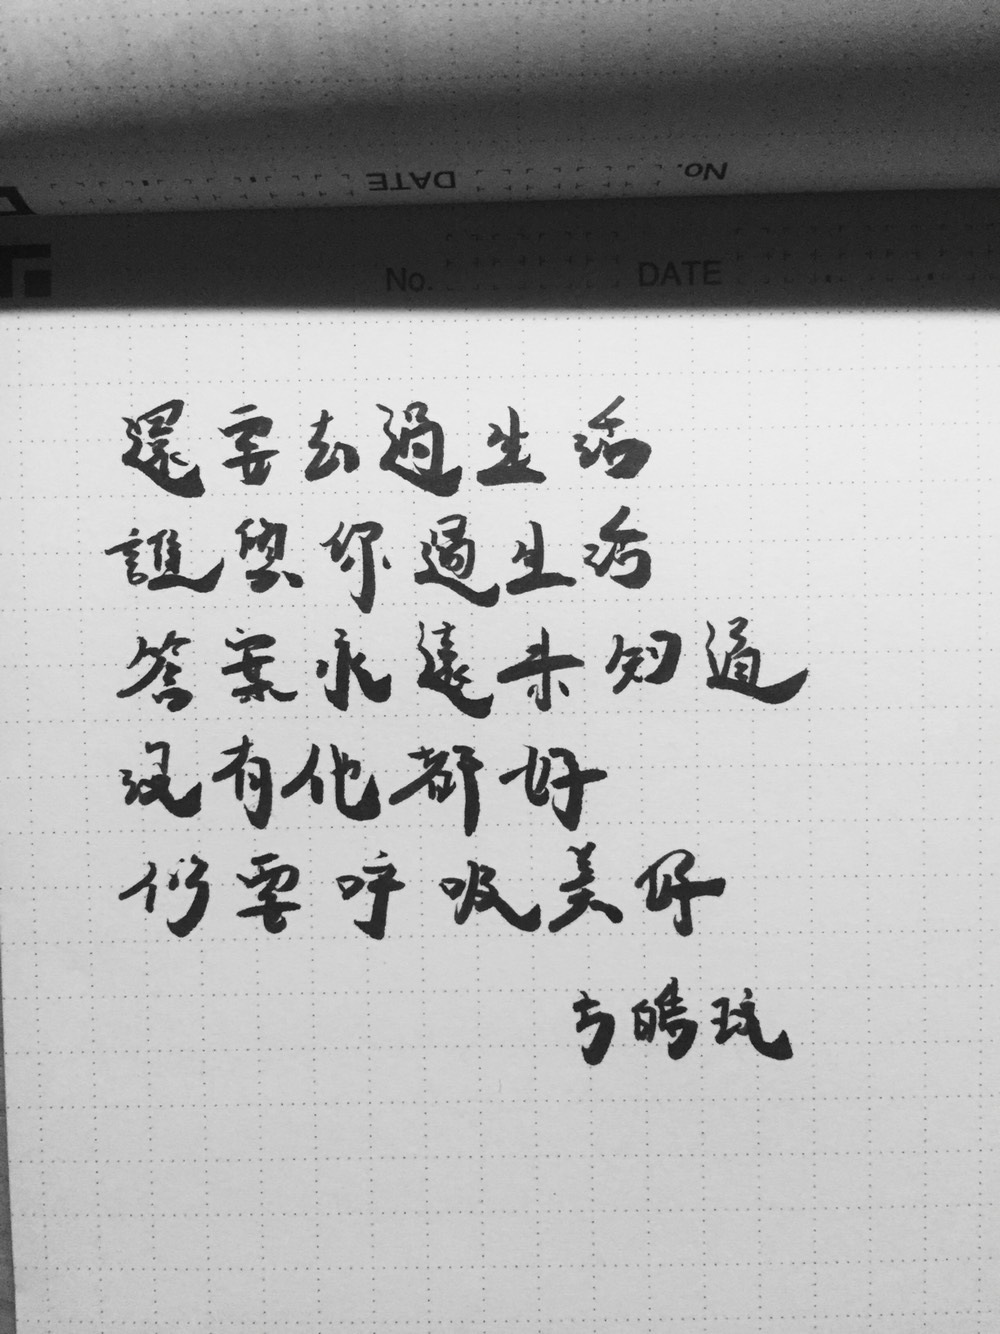 No. DATE
No. DATE
還要去過生活
誰與你過生活
答案永遠未知道
沒有他都好
仍要呼吸美好
方皓玟